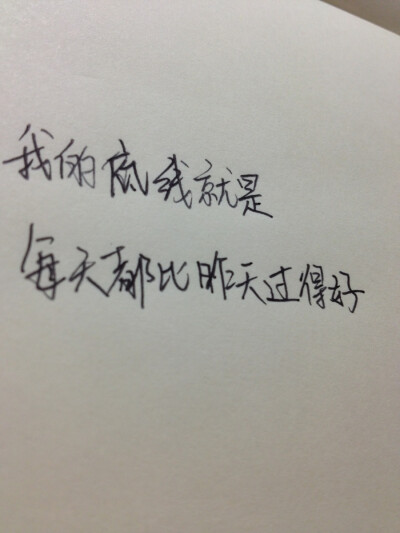 我的底线就是
每天都比昨天过得好